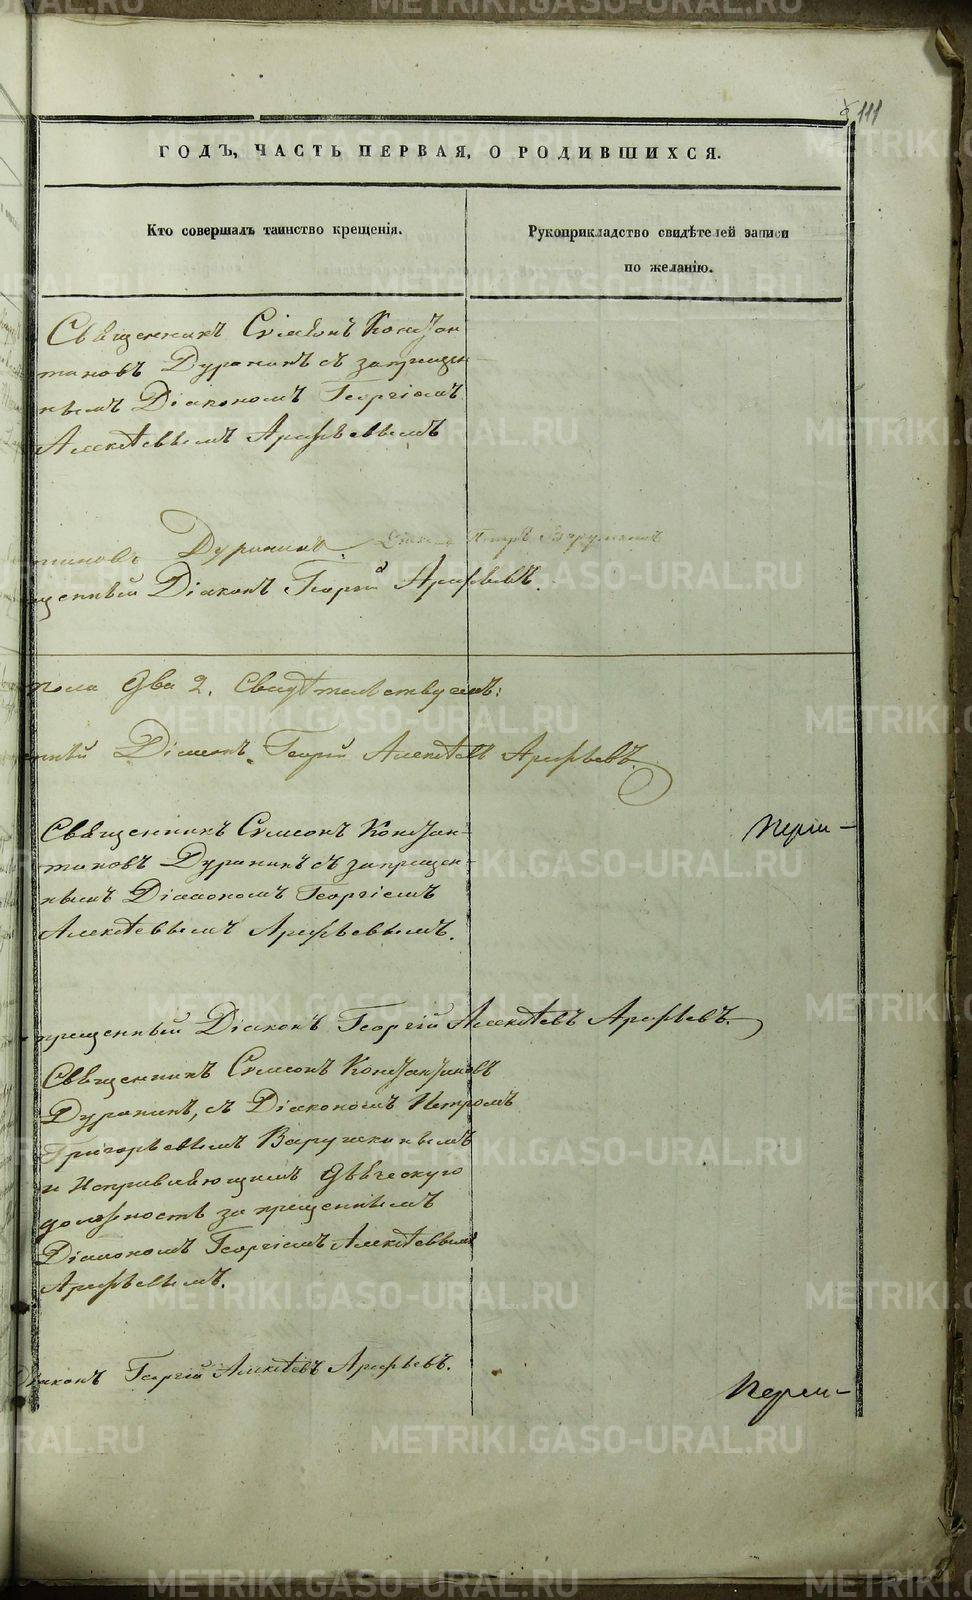 111
ГОДЪ, ЧАСТЬ ПЕРВАЯ, О РОДИВШИХСЯ.
Кто совершалъ таинство крещенія.
Рукоприкладство свидѣтелей записи
по желанію.
Священникъ Симеонъ Констан
тиновъ Дуранинъ съ запрещен-
нымъ Діакономъ Георгіемъ
Алексѣевымъ Арефьевымъ
тиновъ Дуранинъ. Діаконъ Петръ
щенный Діаконъ Георгій Арефьевъ.
пола два 2. Свидѣтельствуемъ:
Діаконъ Георгій Алексѣевъ Арефьевъ.
Священникъ Симеонъ Констан-
тиновъ Дуранинъ съ запрещен-
нымъ Діакономъ Георгіемъ
Алексѣевымъ Арефьевымъ.
прещенный Діаконъ Георгій Алексѣевъ Арефьевъ.
Священникъ Симеонъ Константиновъ
Дуранинъ, съ Діакономъ Петромъ
Григорьевымъ Варушкинымъ
и Исправляющимъ дьяческую
должность запрещеннымъ
Діакономъ Георгіемъ Алексѣевымъ
Арефьевымъ.
Діаконъ Георгій Алексѣевъ Арефьевъ.
METRIKI.GASO-URAL.RU